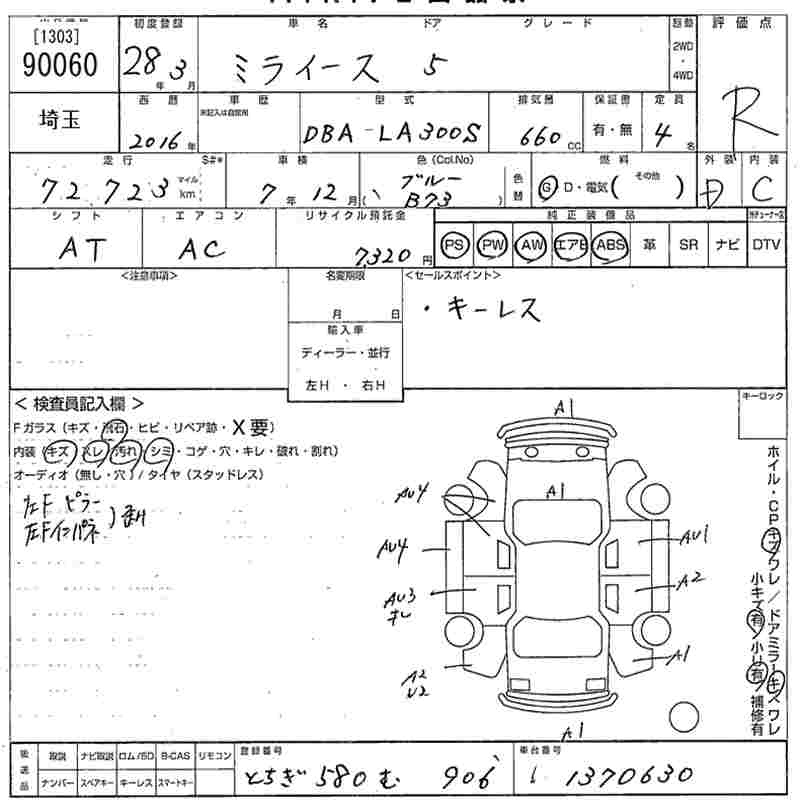 [1303]
90060
初度登録 車名 ドア グレード 駆動 評価点
28年 3月 ミライース 5 2WD・4WD
R
埼玉
西暦 車歴 型式 排気量 保証書 定員
2016年 未記入は自家用 DBA-LA300S 660cc 有・無 4名
走行 S#* 車検 色(Col,No) 燃料 外装 内装
72,723 マイル km 7年 12月 ブルー B73 色替 G D・電気( その他 ) D C
シフト エアコン リサイクル預託金 純正装備品
AT AC 7,320円 PS PW AW エアB ABS 革 SR ナビ DTV
<注意事項> 名変期限 <セールスポイント>
月 日 ・キーレス
輸入車
ディーラー・並行
左H ・ 右H
< 検査員記入欄 > キーロック
Fガラス (キズ・飛石・ヒビ・リペア跡・X要)
内装 (キズ・スレ・汚れ・シミ・コゲ・穴・キレ・破れ・割れ)
オーディオ (無し・穴) / タイヤ (スタッドレス)
左F ピラー
左Fインパネ
A1
A1
AU4
AU4
AU3
キレ
A2
U2
AU1
A2
A1
A1
ホイル・CPキズワレ / ドアミラーキズワレ
小キズ有 小U有 補修有
後送品 取説 ナビ取説 ロム/SD B-CAS リモコン 登録番号 車台番号
ナンバー スペアキー キーレス スマートキー とちぎ 580 む 906 1370630